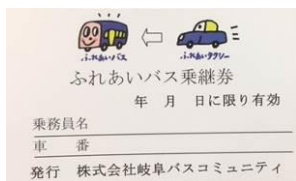 ふれあいバス ふれあいタクシー
ふれあいバス乗継券
年 月 日に限り有効
乗務員名
車 番
発行 株式会社岐阜バスコミュニティ